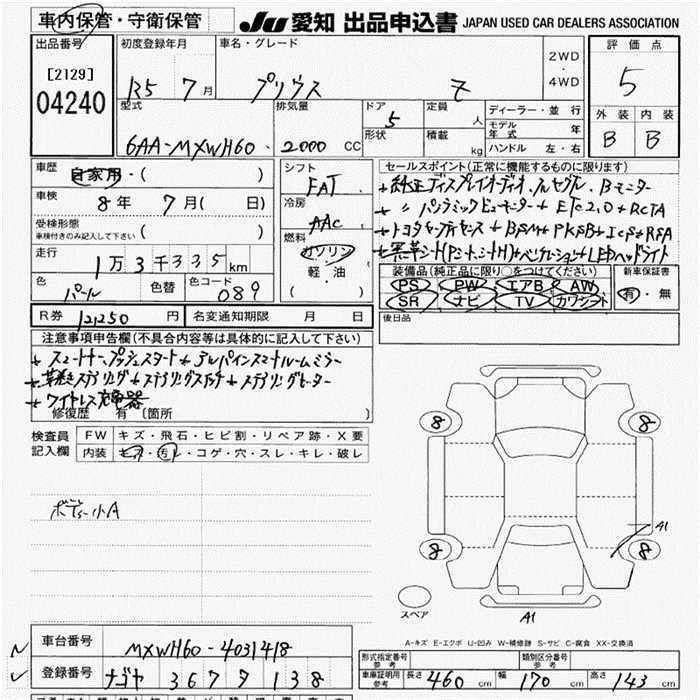 車内保管・守衛保管
JU 愛知 出品申込書 JAPAN USED CAR DEALERS ASSOCIATION
出品番号
[2129]
04240
初度登録年月
R5 年 7月
車名・グレード
プリウス Z
2WD
・
4WD
評価点
5
外装 内装
B B
型式
6AA-MXWH60
排気量
2000 CC
ドア
5
形状
定員
人
積載
kg
ディーラー・並行
モデル年式 年
ハンドル 左・右
車歴
自家用・( )
車検
8年 7月( 日)
受検形態
車検付きのみ記入して下さい ( )
走行
1万3千335km
色
パール
色替
色コード
089
シフト
FAT
冷房
AAC
燃料
ガソリン
軽・油
( )
セールスポイント(正常に機能するものに限ります)
+純正ディスプレイオーディオ、フルセグル、Bモニター
+ 〃 パノラミックビューモニター+ETC2.0+RCTA
+トヨタセーフティセンス+BSM+PKSB+ICS+RSA
+黒革シート(Pシート、シートH)+ベンチレーション+LEDヘッドライト
装備品(純正品に限り○をつけてください)
PS PW エアB AW
SR ナビ TV カワシート
新車保証書
有・無
R券 12,250円
名変通知期限 月 日
後日品
注意事項申告欄(不具合内容等は具体的に記入して下さい)
+スマートキー、プッシュスタート+デジタルインナーミラー
+革巻きステアリング+ステアリングスイッチ+ステアリングヒーター
+ワイヤレス充電器
修復歴 有 〔箇所 〕
検査員記入欄
FW キズ・飛石・ヒビ割・リペア跡・X要
内装 キズ・汚レ・コゲ・穴・スレ・キレ・破レ
ボデー小A
8 8
8 8
A1
A1
スペア
A-キズ E-エクボ U-凹み W-補修跡 S-サビ C-腐食 XX-交換済
車台番号 MXWH60-4031418
登録番号 ナゴヤ 367 タ 138
形式指定番号 参考
類別区分番号 参考
車庫証明用参考 長さ 460cm 幅 170cm 高さ 143cm